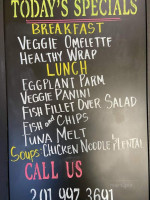 TODAY'S SPECIALS
BREAKFAST
VEGGIE OMELETTE
HEALTHY WRAP
LUNCH
EGGPLANT PARM
VEGGIE PANINI
FISH FILLET OVER SALAD
FISH and CHIPS
TUNA MELT
Soups: CHICKEN NOODLE & LENTAL
CALL US
201 997 3691